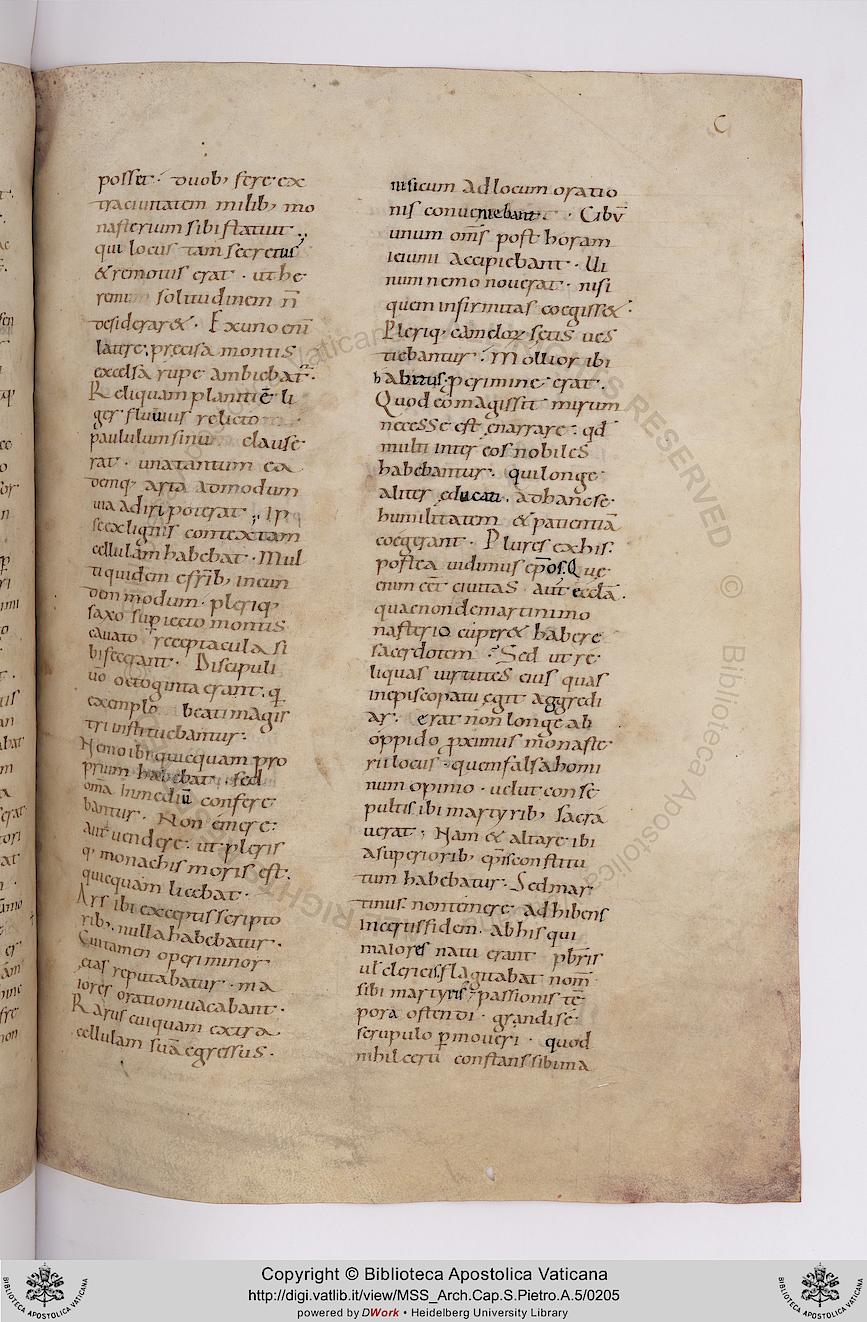 C
posset· duob; fere ex
tra ciuitatem milib; mo
nasterium sibi statuit·,
qui locus tam secretus
& remotus erat · ut he
remi solitudinem n̄
desiderar&· Ex uno eni
latere· precisa montis
excelsa rupe ambiebat̄·
Reliquam planitiē li
ger fluuius relicto
paululum sinu clause
rat· una tantum ea
demq; arta admodum
uia adiri poterat·,
se ex lignis contextam
cellulam habebat· Mul
ti quidem e frīb; in eun
dem modum· pleriq;
saxo superiecto montis
cauato receptacula si
bi fecerant· Discipuli
uō octoginta erant· q̄
exemplo beati magis
tri instituebantur·
Nemo ibi quicquam pro
prium habebat· sed
om̄a in mediū confere
bantur· Non emere·
aut uendere· ut pleris
q; monachis moris est·
quicquam licebat·
Ars ibi exceptis scripto
rib; nulla habebatur·
Cui tamen operi minor
etas reputabatur· ma
iores orationi uacabant·
Rarus cuiquam extra
cellulam suā egressus·
nisi cum ad locum oratio
nis conueniebant· Cibū
unum om̄s post horam
ieiunii accipiebant· Ui
num nemo nouerat· nisi
quem infirmitas coegiss&·
Pleriq; cameloꝝ setis ues
tiebantur· Mollior ibi
habitus p crimine erat·
Quod eo magis sit mirum
necesse est enarrare· qd
multi inter eos nobiles
habebantur· qui longe
aliter educati· ad hanc se
humilitatem & patientiā
coegerant· Plures ex his·
postea uidimus ep̄os· Que
enim eēt ciuitas aut eccl̄a·
quae non de martini mo
nasterio cuper& habere
sacerdotem· Sed ut re
liquas uirtutes eius quas
in episcopatu egit aggredi
ar· erat non longe ab
oppido proximus monaste
rii locus· quem falsa homi
num opinio· uelut con se
pultis ibi martyrib; sacra
uerat· Nam & altare ibi
a superiorib; ep̄is constitu
tum habebatur· Sed mar
tinus non temere adhibens
incertis fidem· ab his qui
maiores natu erant pbr̄is
ul̄ clericis flagitabat nom̄
sibi martyris· passionis tē
pora ostendi· grandi se·
scrupulo ꝑmoueri· quod
nihil certi constans sibi ma
Copyright © Biblioteca Apostolica Vaticana
http://digi.vatlib.it/view/MSS_Arch.Cap.S.Pietro.A.5/0205
powered by DWork • Heidelberg University Library